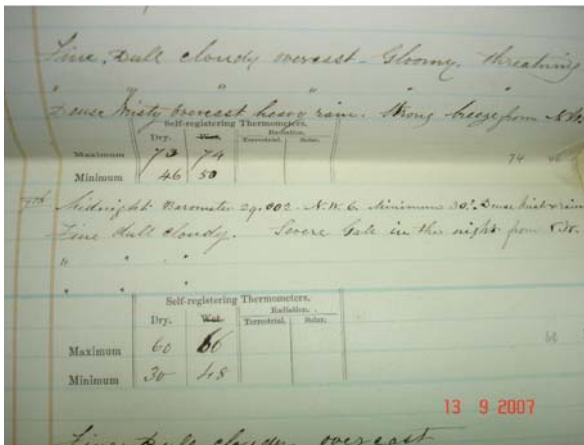 Fine, Dull cloudy overcast - Gloomy. threatning
" " " " "
Dense Misty overcast heavy rain. Strong breeze from N.W.
Self-registering Thermometers.
Radiation.
Dry. Wet. Terrestrial. Solar.
74
Maximum 73 74
Minimum 46 50
9th Midnight Barometer 29.002 N.W. 6. Minimum 30°. Dense mist & rain
Fine dull cloudy. Severe Gale in the night from
" " "
" " "
Self-registering Thermometers.
Radiation.
Dry. Wet. Terrestrial. Solar.
Maximum 60 66
Minimum 30 48
13 9 2007
Fine Dull cloudy overcast